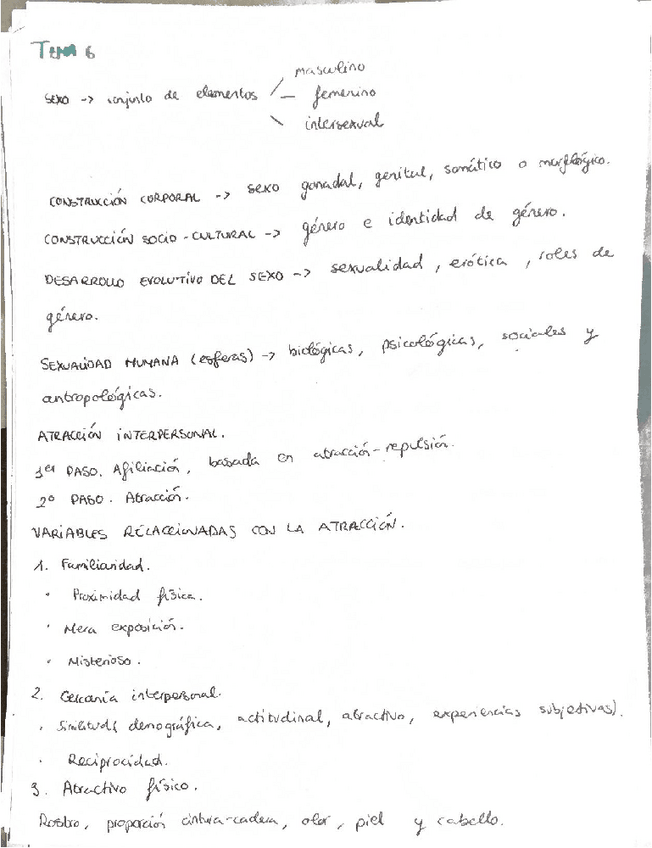 TEMA 6
SEXO -> conjunto de elementos / masculino
— femenino
\ intersexual
CONSTRUCCIÓN CORPORAL -> sexo gonadal, genital, somático o morfológico.
CONSTRUCCIÓN SOCIO-CULTURAL -> género e identidad de género.
DESARROLLO EVOLUTIVO DEL SEXO -> sexualidad, erótica, roles de
género.
SEXUALIDAD HUMANA (esferas) -> biológicas, psicológicas, sociales y
antropológicas.
ATRACCIÓN INTERPERSONAL.
1er PASO. Afiliación, basada en atracción-repulsión.
2º PASO. Atracción.
VARIABLES RELACCIONADAS CON LA ATRACCIÓN.
1. Familiaridad.
· Proximidad física.
· Mera exposición.
· Misterioso.
2. Cercanía interpersonal.
· Similitud( demográfica, actitudinal, atractivo, experiencias subjetivas).
· Reciprocidad.
3. Atractivo físico.
Rostro, proporción cintura-cadera, olor, piel y cabello.